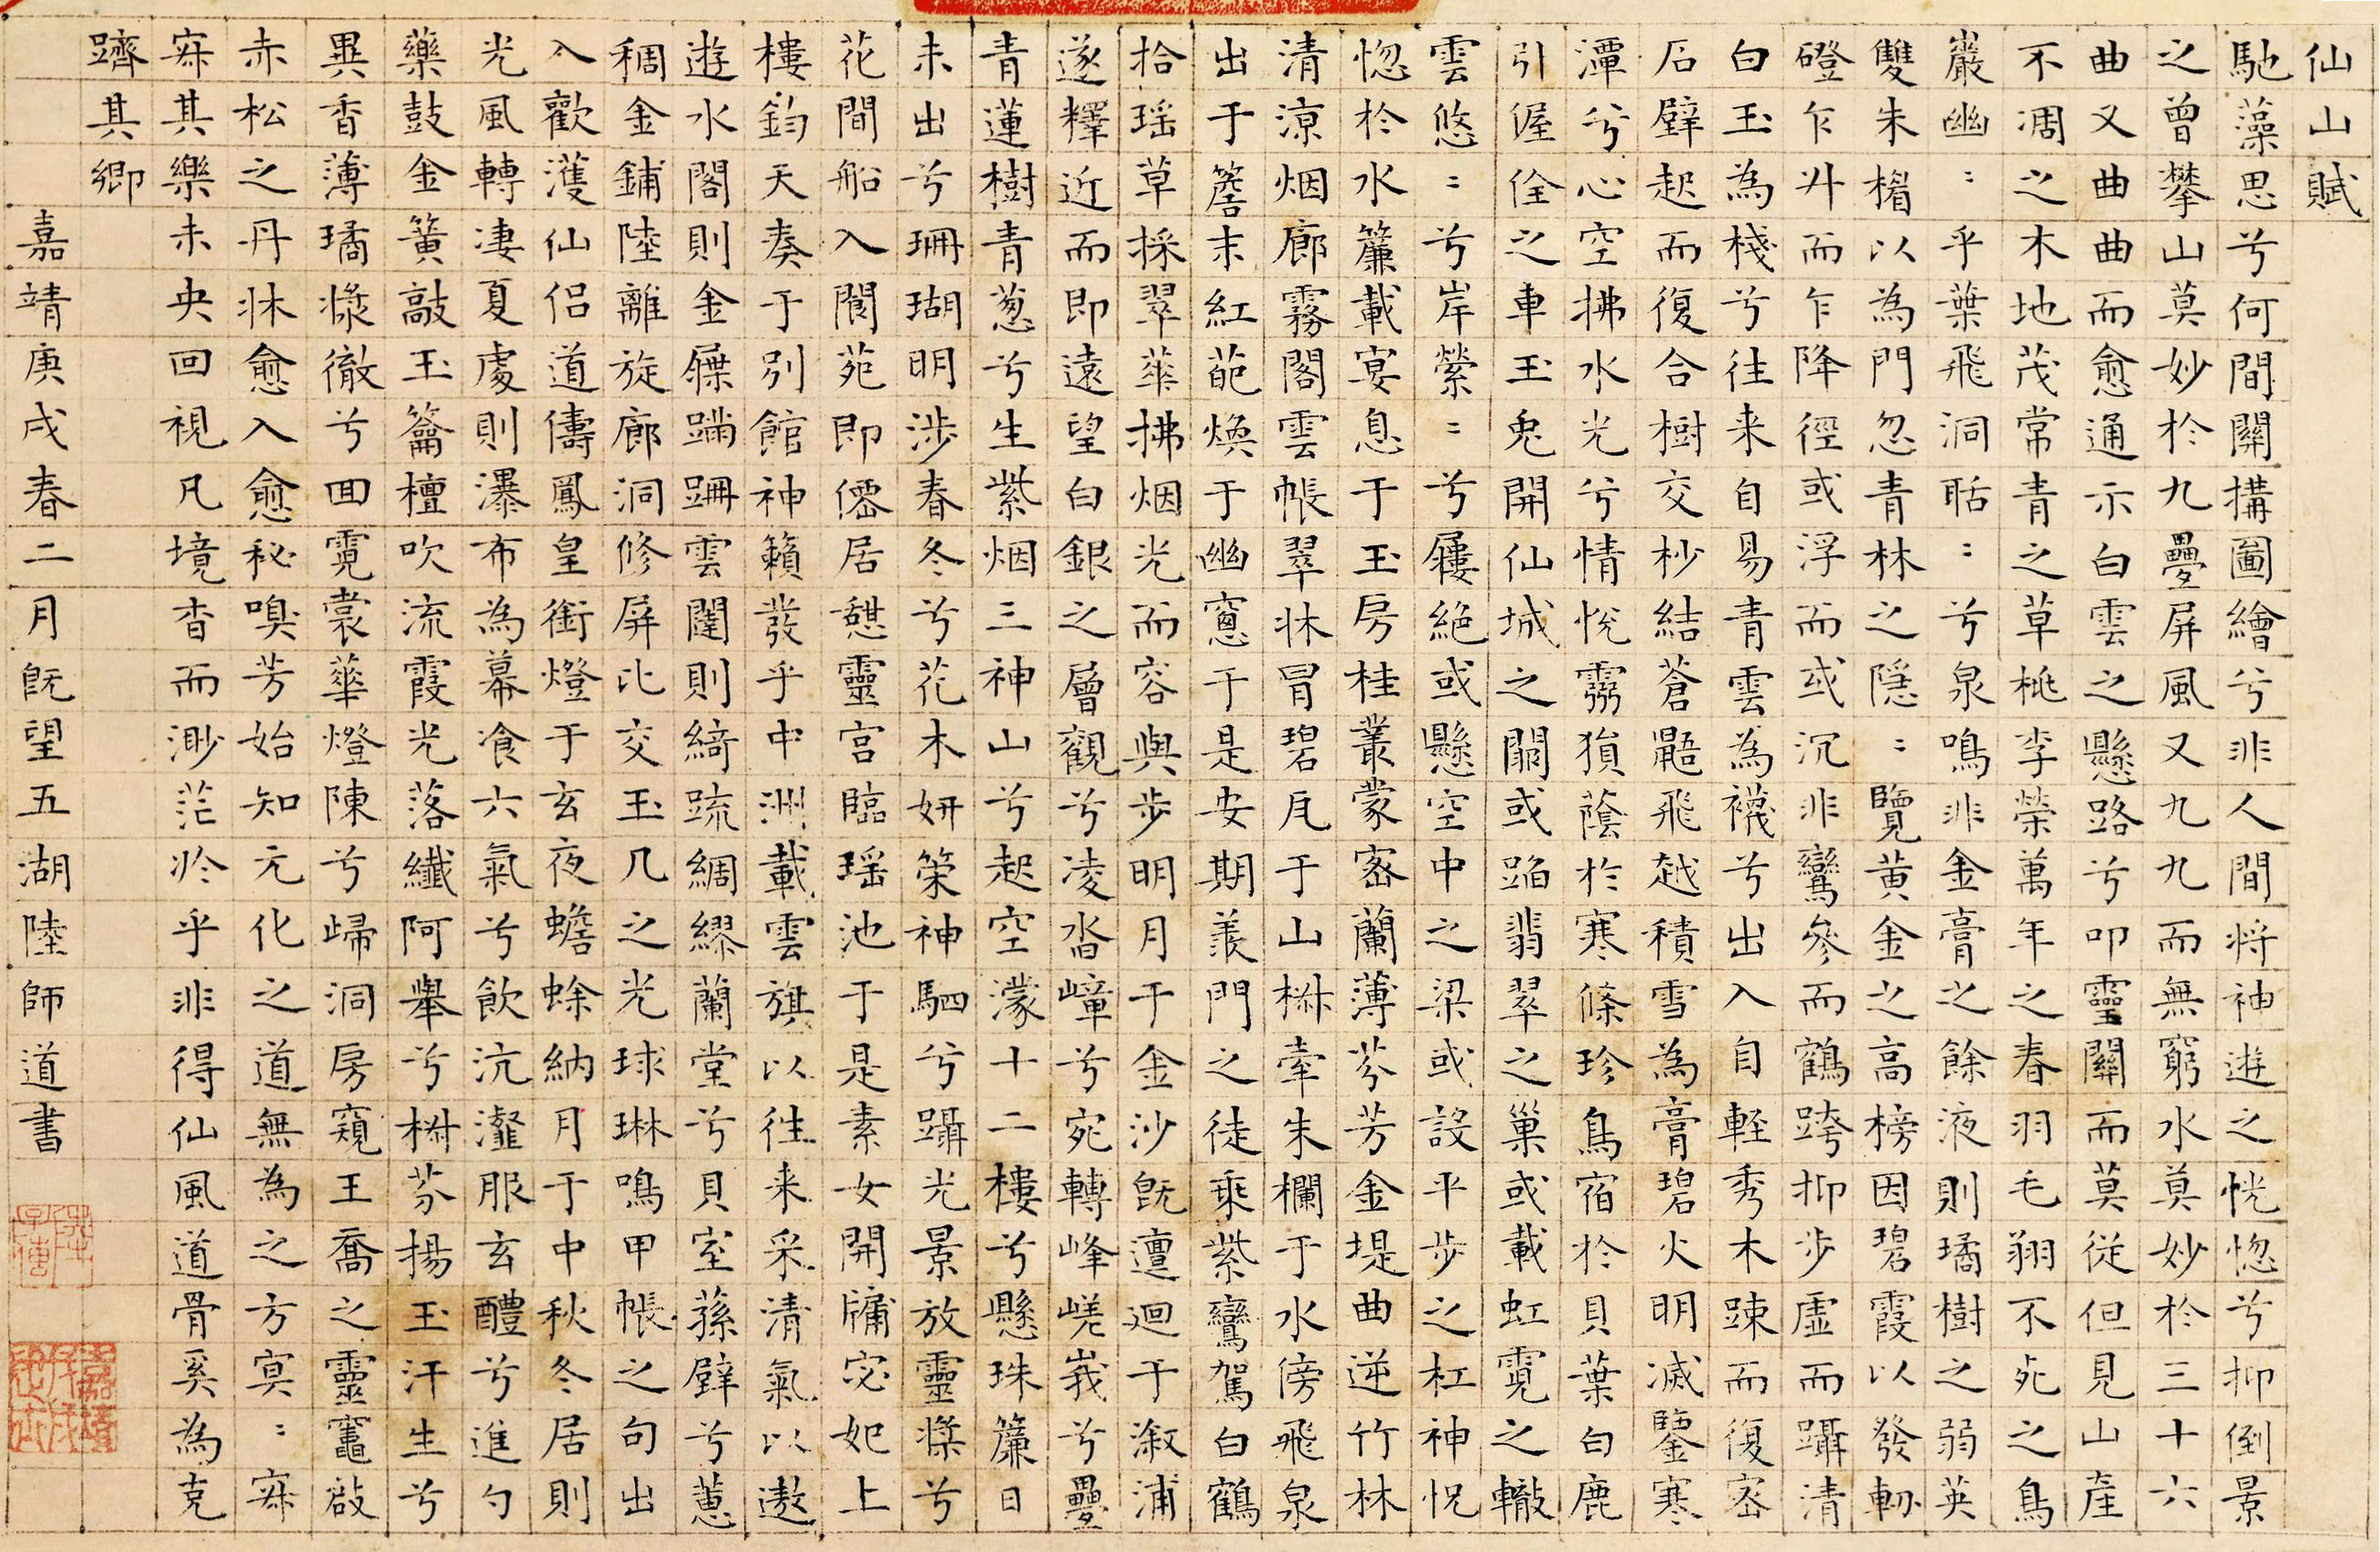 仙山賦
馳藻思兮何間關搆圖繪兮非人間将神遊之恍惚兮抑倒景
之曾攀山莫妙於九疊屏風又九九而無窮水莫妙於三十六
曲又曲曲而愈通示白雲之懸路兮叩靈關而莫従但見山產
不凋之木地茂常青之草桃李榮萬年之春羽毛翔不死之鳥
巖幽〻乎葉飛洞聒〻兮泉鳴非金膏之餘液則璚樹之弱英
雙朱楯以為門忽青林之隱〻覽黄金之高榜因碧霞以發軔
磴乍升而乍降徑或浮而或沉非鸞參而鶴跨抑步虛而躡清
白玉為棧兮往来自易青雲為襪兮出入自輕秀木踈而復密
石壁起而復合樹交杪結蒼鼯飛越積雪為膏碧火明滅鑒寒
潭兮心空拂水光兮情悅霧猿蔭於寒條珍鳥宿於貝葉白鹿
引偓佺之車玉兎開仙城之關或蹈翡翠之巢或載虹霓之轍
雲悠〻兮岸縈〻兮屨絕或懸空中之梁或設平步之杠神怳
惚於水簾載宴息于玉房桂叢蒙密蘭薄芬芳金堤曲逆竹林
清涼烟廊霧閣雲帳翠牀冒碧瓦于山椒牽朱欄于水傍飛泉
出于簷末紅葩煥于幽窻于是安期羨門之徒乘紫鸞駕白鶴
拾瑶草採翠華拂烟光而容與步明月于金沙旣邅迴于溆浦
遂釋近而即遠望白銀之層觀兮凌沓嶂兮宛轉峰嵯峩兮疊
青蓮樹青葱兮生紫烟三神山兮起空濛十二樓兮懸珠簾日
未出兮珊瑚明涉春冬兮花木妍榮神駟兮躡光景放靈槳兮
花間船入閬苑即僊居憩靈宮臨瑶池于是素女開牖宓妃上
樓鈞天奏于別館神籟發乎中洲載雲旗以往来采清氣以遨
遊水閣則金屧蹣跚雲闥則綺疏綢繆蘭堂兮貝室蓀壁兮蕙
稠金鋪陸離旋廊洞修屏比交玉几之光球琳鳴甲帳之句出
入歡濩仙侣道儔鳳皇銜燈于玄夜蟾蜍納月于中秋冬居則
光風轉淒夏處則瀑布為幕飡六氣兮飲沆瀣服玄醴兮進勺
藥鼓金簧敲玉籥檀吹流霞光落纖阿舉兮椒芬揚玉汗生兮
異香薄璚漿徹兮回霓裳華燈陳兮歸洞房窺王喬之靈竈啟
赤松之丹牀愈入愈秘嗅芳始知元化之道無為之方冥〻寐
寐其樂未央回視凡境杳而渺茫於乎非得仙風道骨奚為克
躋其鄉
嘉靖庚戌春二月旣望五湖陸師道書